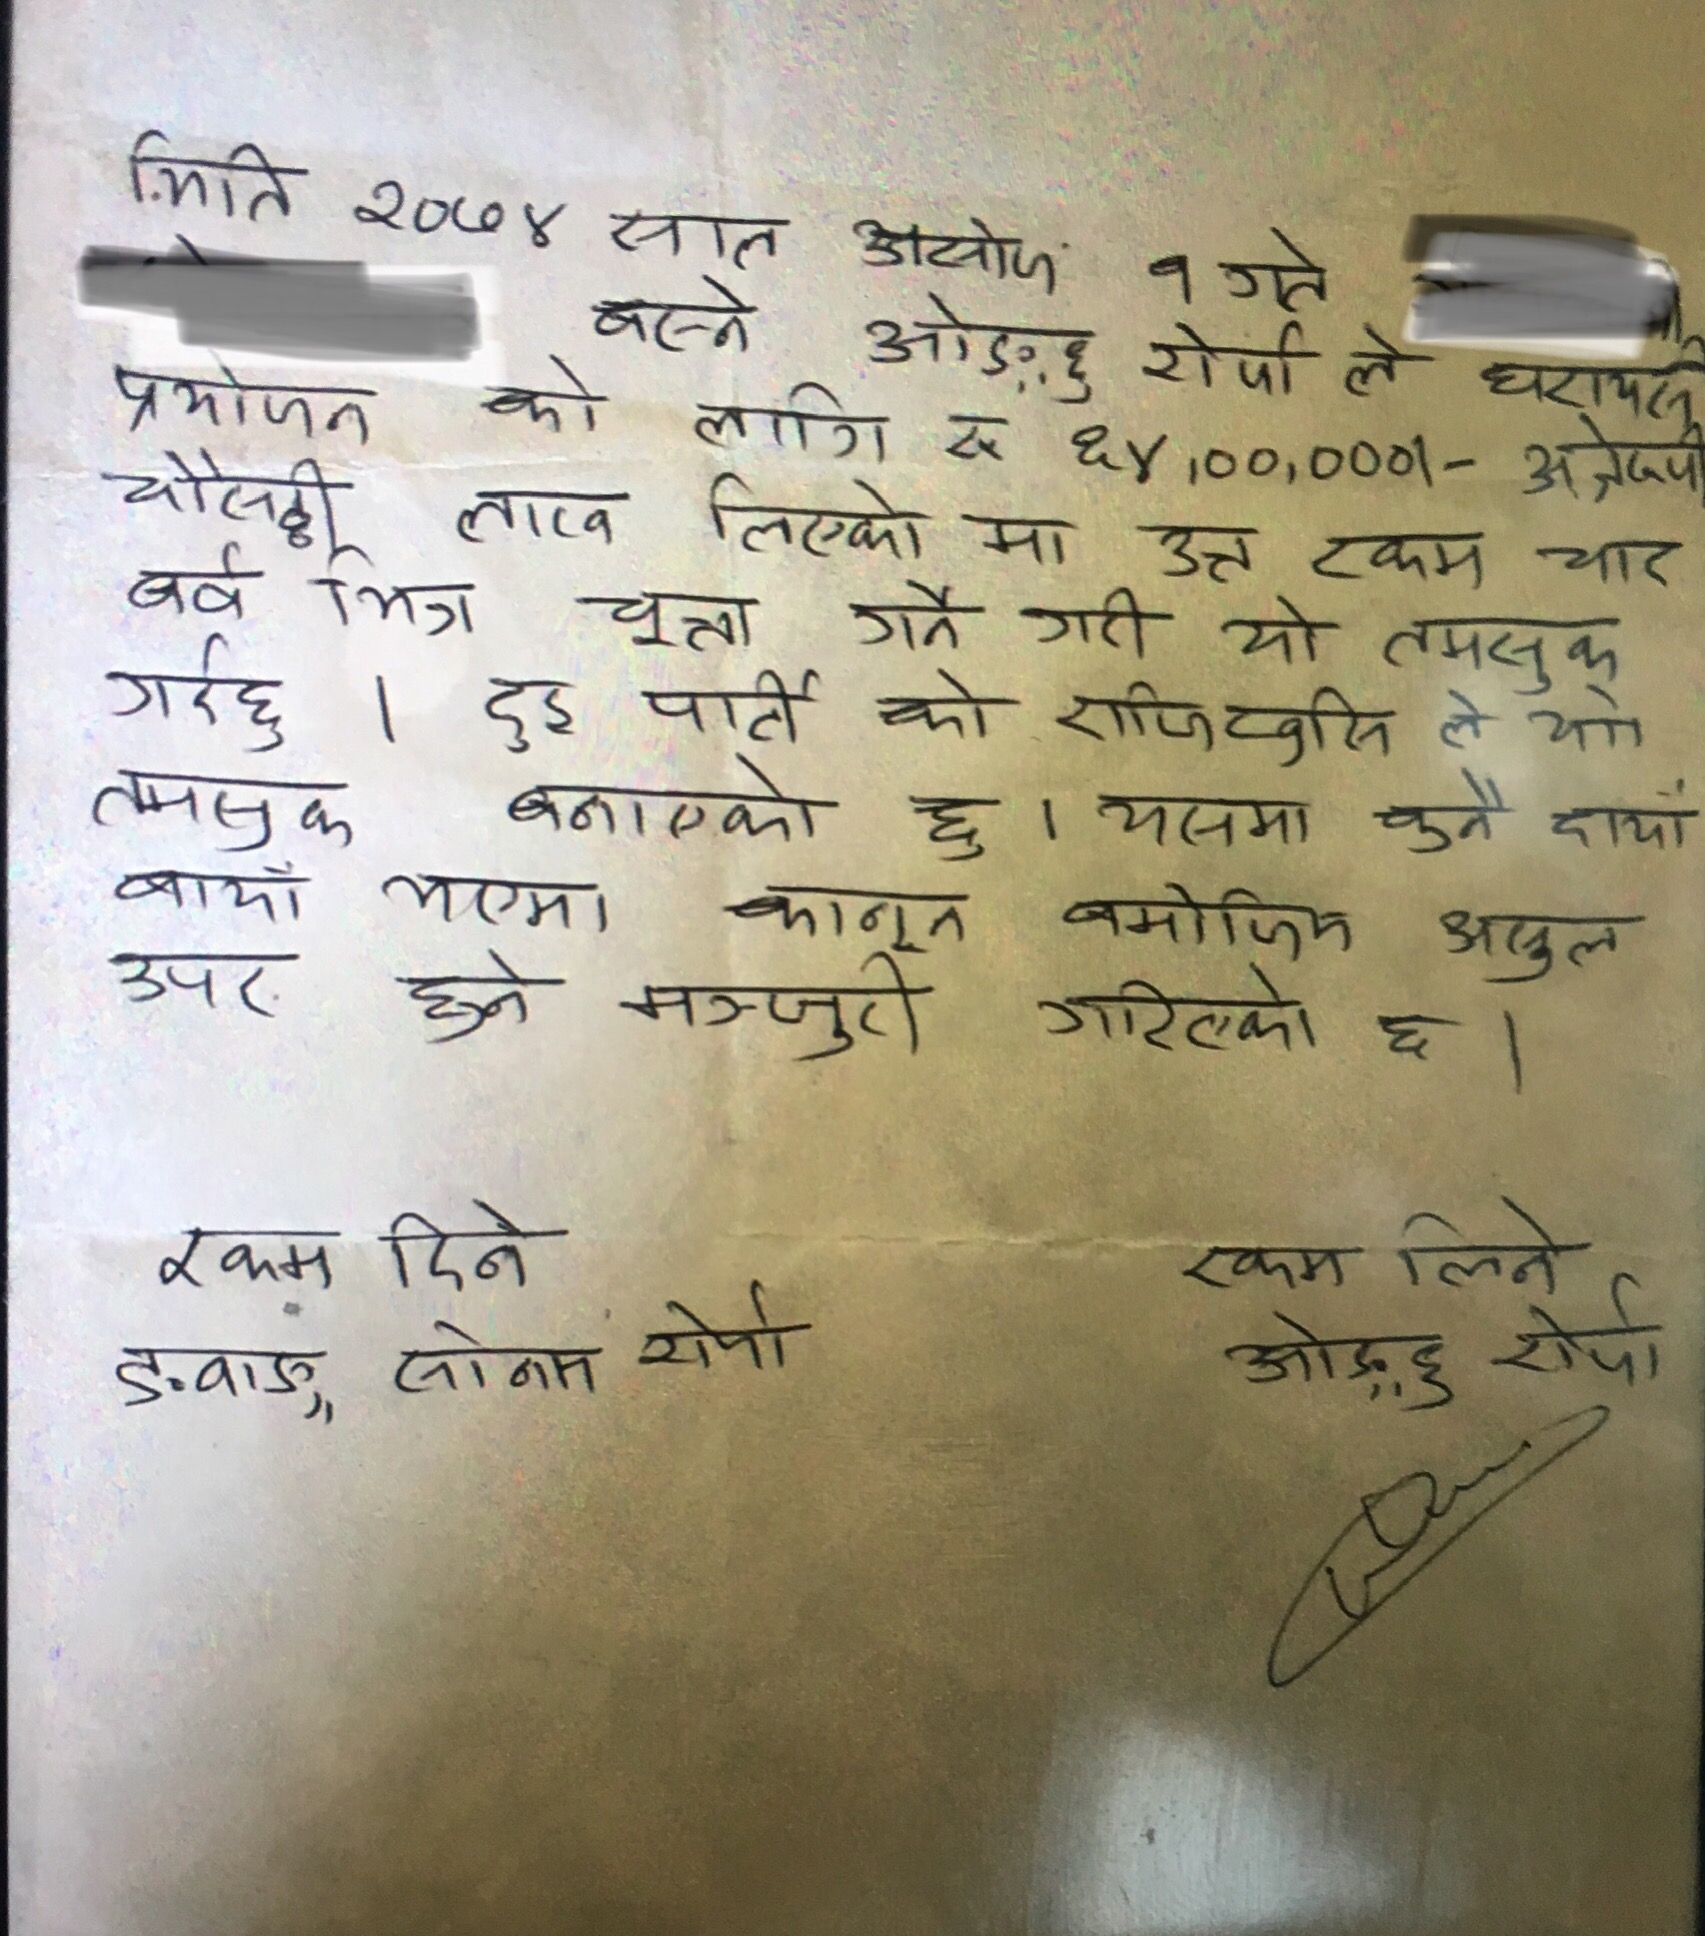 मिति २०७४ साल असोज १ गते
बस्ने ओङछु शेर्पा ले घरायसी
प्रयोजन को लागि रु ६४,००,०००।- अक्षेरुपी
चौसठ्ठी लाख लिएको मा उक्त रकम चार
बर्ष भित्र चूक्ता गर्ने गरी यो तमसुक
गर्दछु । दुइ पार्टी को राजिखुसि ले यो
तमसुक बनाएको छु । यसमा कुनै दायाँ
बायाँ भएमा कानून बमोजिम असुल
उपर हुने मञ्जुरी गरिएको छ ।
रकम दिने
ङवाङ सोनाम शेर्पा
रकम लिने
ओङछु शेर्पा